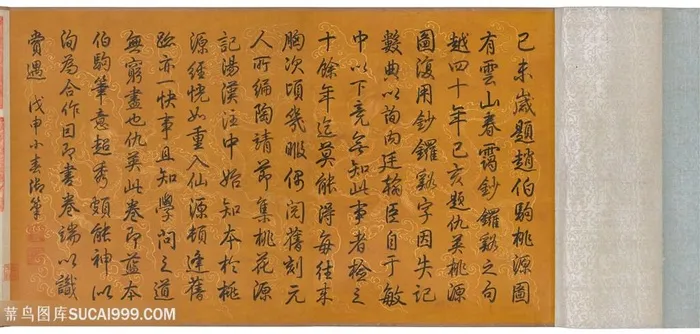 己未歲題趙伯駒桃源圖
有雲山春靄鈔鑼谿之句
越四十年己亥題仇英桃源
圖復用鈔鑼谿字因失記
數典以苗内廷翰臣自于敏
中以下竟無知此事者檢之
十餘年迄莫能得每往來
胸次頃幾暇偶閱舊刻元
人所編陶靖節集桃花源
記湯漢注中始知本於桃
源經恍如重入仙源頓逢舊
跡亦一快事且知學問之道
無窮盡也仇英此卷即藍本
伯駒筆意超秀頗能神似
洵為合作因即書卷端以識
賞遇 戊申小春御筆
菜鸟图库SUCAI999.COM